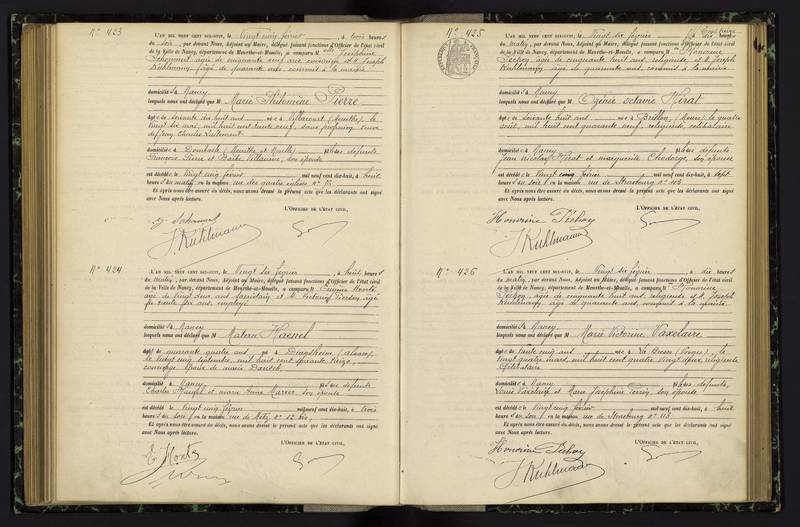 N° 423
L'AN MIL NEUF CENT DIX-HUIT, le Vingt cinq février, à trois heures
du soir, par devant Nous, Adjoint au Maire, délégué faisant fonctions d'Officier de l'état civil
de la Ville de Nancy, département de Meurthe-et-Moselle, a comparu M Joséphine
âgée de cinquante neuf ans et Joseph
Kuhlmann, âgé de quarante ans, commis à la mairie
domiciliés à Nancy
lesquels nous ont déclaré que M Marie Philomène Pierre
âgée de soixante dix huit ans née à Villacourt (Meurthe) le
Vingt six mai, mil huit cent trente neuf, sans profession, veuve
de Jean Charles
domiciliée à Dombasle (Meurthe et Moselle) fille de défunts
François Pierre et Villaume, son épouse
est décédée le Vingt cinq février mil neuf cent dix-huit, à huit
heures du matin, en la maison rue des quatre églises N°
Et après nous être assuré du décès, nous avons dressé le présent acte que les déclarants ont signé
avec Nous après lecture.
L'OFFICIER DE L'ÉTAT CIVIL,
J. Kuhlmann
N° 424
L'AN MIL NEUF CENT DIX-HUIT, le Vingt six février, à huit heures
du matin, par devant Nous, Adjoint au Maire, délégué faisant fonctions d'Officier de l'état civil
de la Ville de Nancy, département de Meurthe-et-Moselle, a comparu
âgé de vingt deux ans et M. Victorin âgé
de trente six ans, employé
domiciliés à Nancy
lesquels nous ont déclaré que M Matern Haenel
âgé de quarante quatre ans né à Dingsheim (alsace)
le Vingt cinq septembre, mil huit cent soixante treize,
époux de marie
domicilié à Nancy fils de défunts
Charles et marie Anne son épouse
est décédé le Vingt cinq février mil neuf cent dix-huit, à trois
heures du soir, en la maison rue de Metz N° 12 bis
Et après nous être assuré du décès, nous avons dressé le présent acte que les déclarants ont signé
avec Nous après lecture.
L'OFFICIER DE L'ÉTAT CIVIL,
N° 425
L'AN MIL NEUF CENT DIX-HUIT, le Vingt six février, à dix heures
du matin, par devant Nous, Adjoint au Maire, délégué faisant fonctions d'Officier de l'état civil
de la Ville de Nancy, département de Meurthe-et-Moselle, a comparu Honorine
Péchoy âgée de cinquante huit ans, religieuse et M. Joseph
Kuhlmann, âgé de quarante ans, commis à la mairie
domiciliés à Nancy
lesquels nous ont déclaré que M Eugénie octavie Hirat
âgée de soixante huit ans née à Brillon (Meuse) le quatre
août, mil huit cent quarante neuf, religieuse, célibataire
domiciliée à Nancy fille de défunts
Jean nicolas Hirat et marguerite Chedorge, son épouse
est décédée le Vingt cinq février mil neuf cent dix-huit, à sept
heures du soir, en la maison rue de Strasbourg N° 113
Et après nous être assuré du décès, nous avons dressé le présent acte que les déclarants ont signé
avec Nous après lecture.
L'OFFICIER DE L'ÉTAT CIVIL,
Honorine Péchoy
J. Kuhlmann
N° 426
L'AN MIL NEUF CENT DIX-HUIT, le Vingt six février, à dix heures
du matin, par devant Nous, Adjoint au Maire, délégué faisant fonctions d'Officier de l'état civil
de la Ville de Nancy, département de Meurthe-et-Moselle, a comparu Honorine
Péchoy, âgée de cinquante huit ans, religieuse et M. Joseph
Kuhlmann, âgé de quarante ans, commis à la mairie
domiciliés à Nancy
lesquels nous ont déclaré que M Marie Victorine Vaxelaire
âgée de trente cinq ans née à La Bresse (Vosges) le
Vingt quatre mars, mil huit cent quatre Vingt deux, religieuse
Célibataire
domiciliée à Nancy fille de défunts
Louis Vaxelaire et Marie Joséphine Perrin, son épouse
est décédée le Vingt cinq février mil neuf cent dix-huit, à huit
heures du soir, en la maison rue de Strasbourg N° 113
Et après nous être assuré du décès, nous avons dressé le présent acte que les déclarants ont signé
avec Nous après lecture.
L'OFFICIER DE L'ÉTAT CIVIL,
Honorine Péchoy
J. Kuhlmann